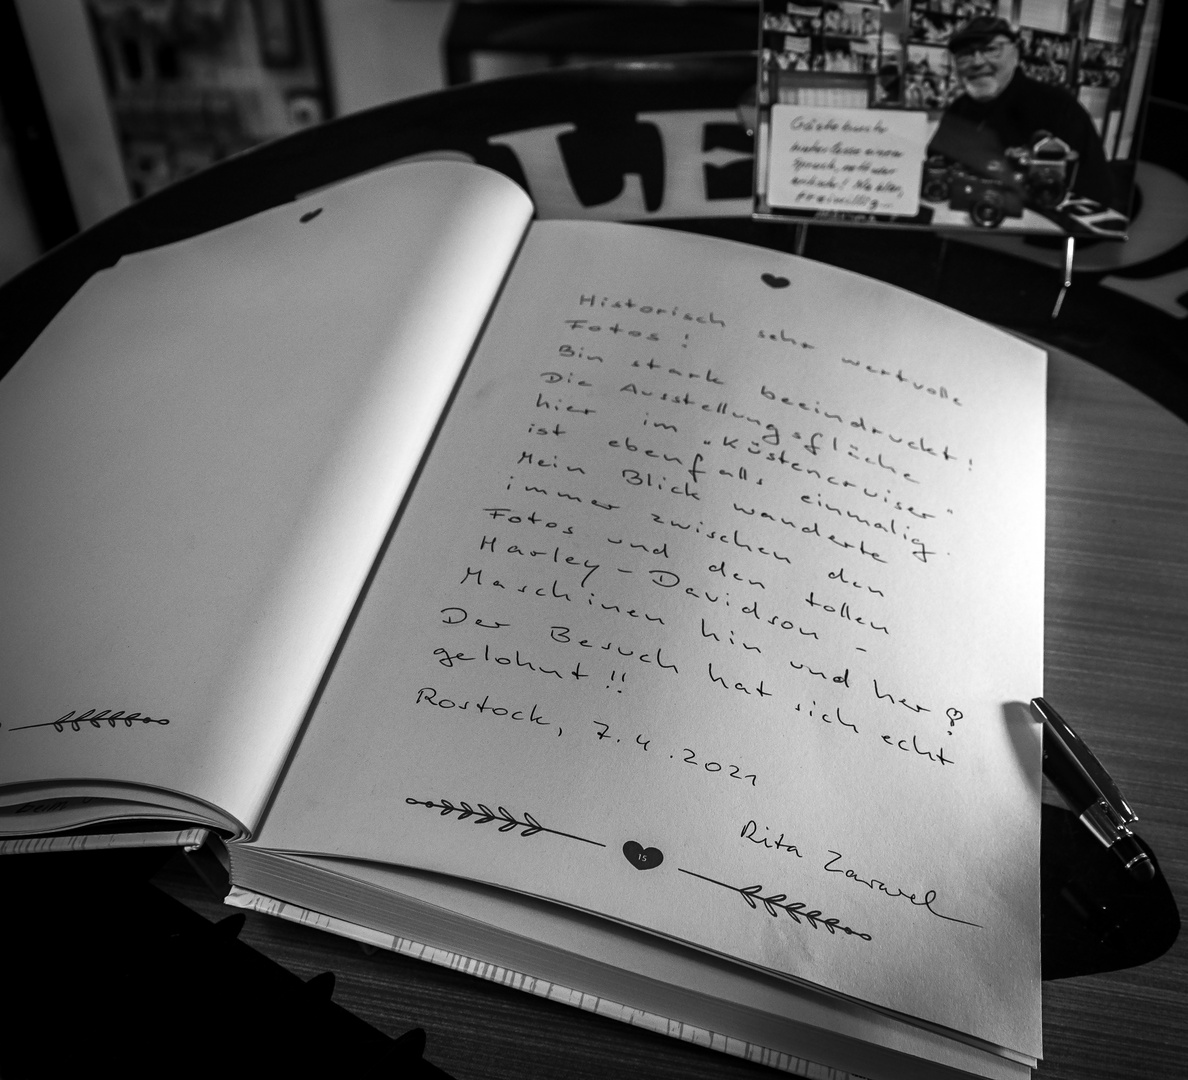 LE
Historisch sehr wertvolle
Fotos !
Bin stark beeindruckt!
Die Ausstellungsfläche
hier im „Küstencruiser“
ist ebenfalls einmalig.
Mein Blick wanderte
immer zwischen den
Fotos und den tollen
Harley-Davidson-
Maschinen hin und her
Der Besuch hat sich echt
gelohnt !!
Rostock, 7.4.2021
Rita
15